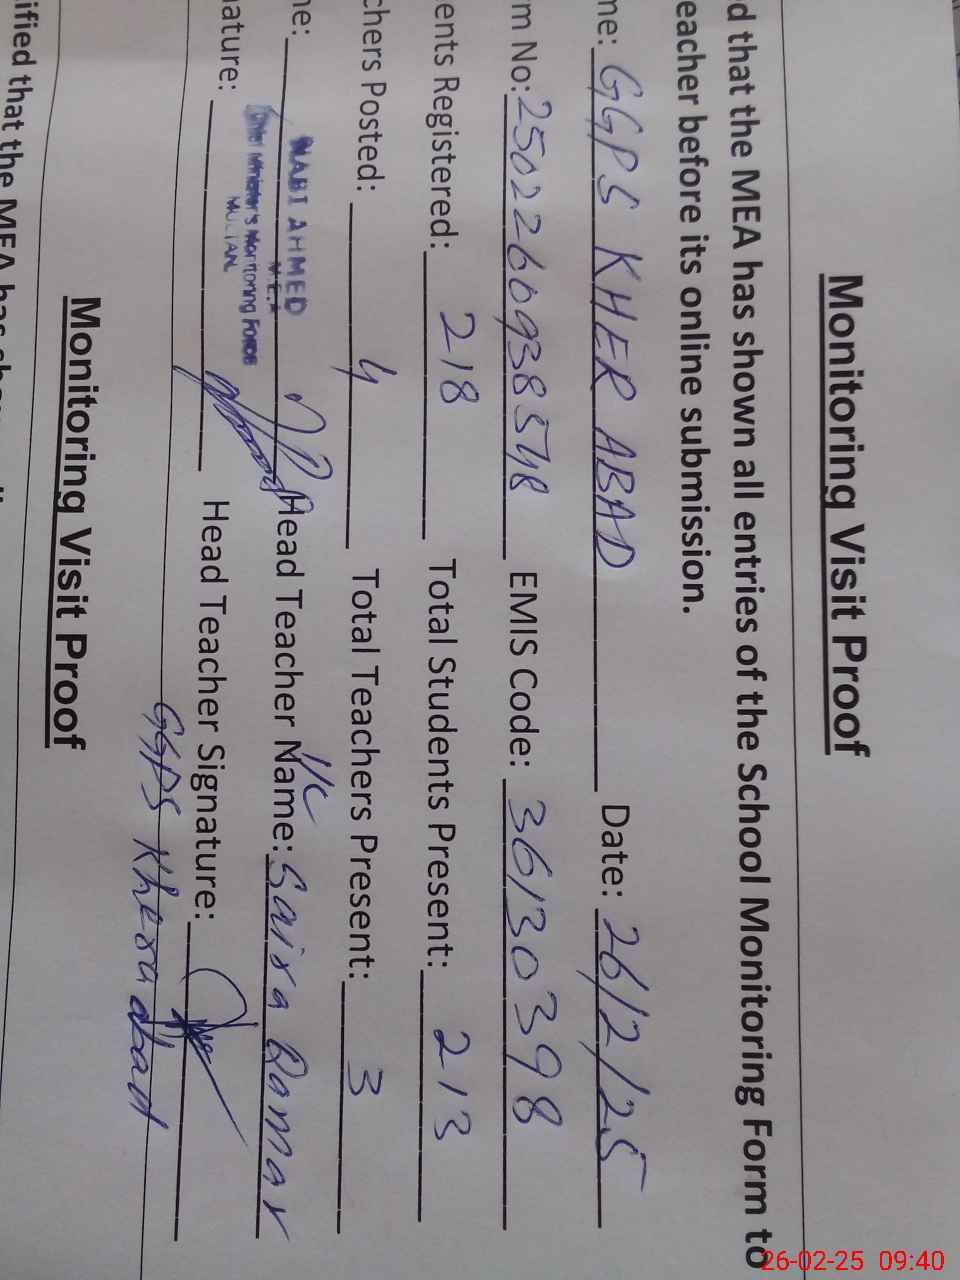 Monitoring Visit Proof
d that the MEA has shown all entries of the School Monitoring Form to
eacher before its online submission.
me: GGPS KHER ABAD Date: 26/2/25
rm No: 250226093858548 EMIS Code: 36130398
ents Registered: 218 Total Students Present: 213
chers Posted: 4 Total Teachers Present: 3
I/C
ne: NABI AHMED Head Teacher Name: Saira Qamar
M.E.A
Chief Minister's Monitoring Force
MULTAN
nature: Head Teacher Signature:
GGPS Khera abad
Monitoring Visit Proof
ified that the MEA has
26-02-25 09:40